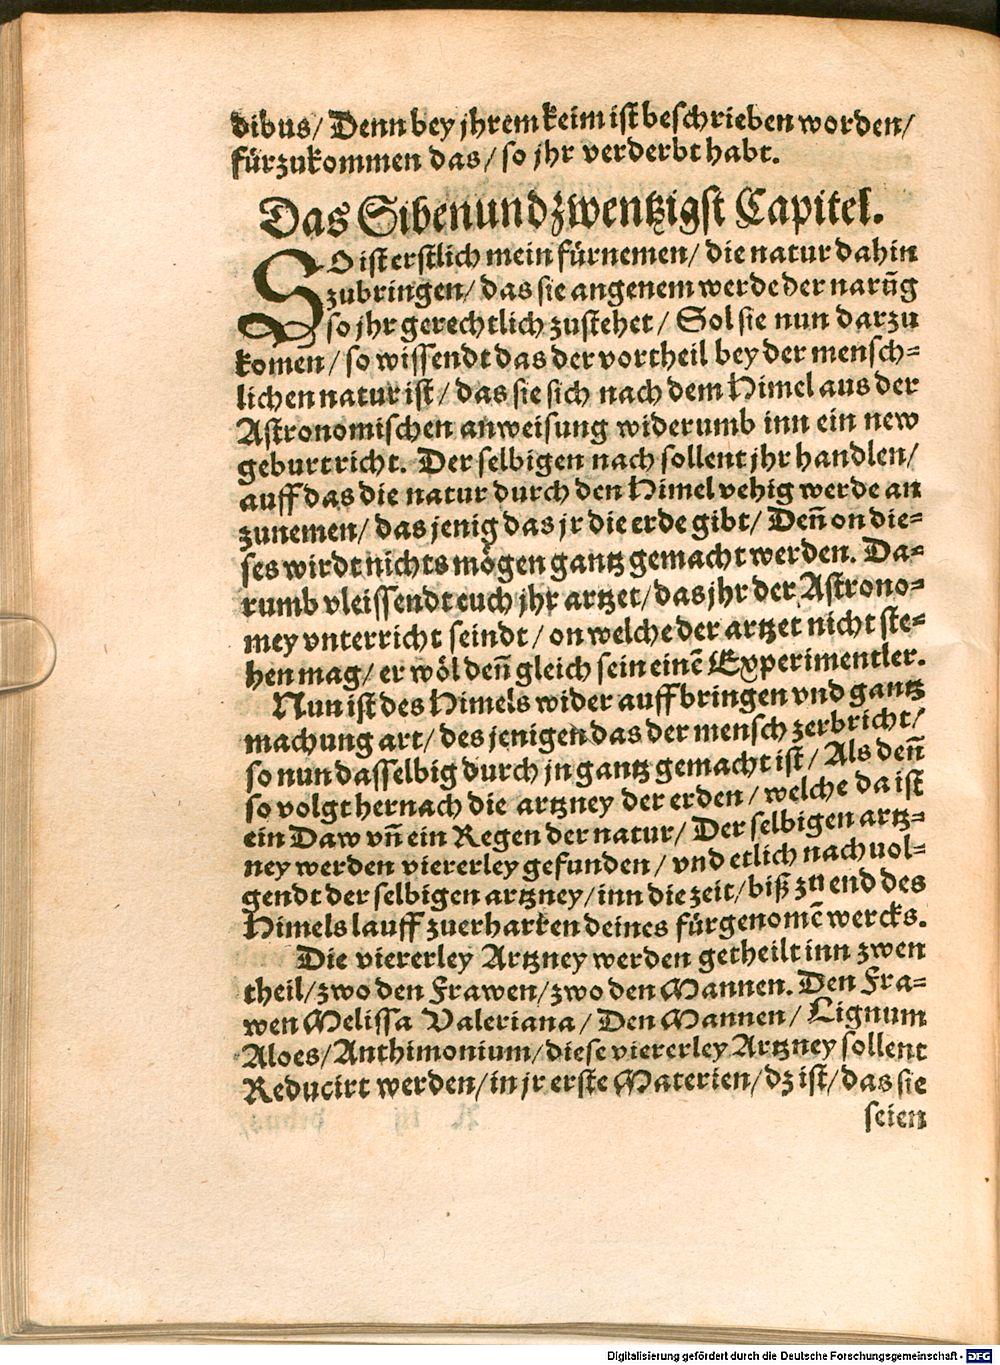 dibus/ Denn bey jhrem keim ist beschrieben worden/
fürzukommen das/ so jhr verderbt habt.
Das Sibenundzwentzigst Capitel.
SO ist erstlich mein fürnemen/ die natur dahin
zubringen/ das sie angenem werde der narūg
so jhr gerechtlich zustehet/ Sol sie nun darzu
komen/ so wissendt das der vortheil bey der mensch-
lichen natur ist/ das sie sich nach dem Himel aus der
Astronomischen anweisung widerumb inn ein new
geburt richt. Der selbigen nach sollent jhr handlen/
auff das die natur durch den Himel vehig werde an
zunemen/ das jenig das jr die erde gibt/ Deñ on die-
ses wirdt nichts mögen gantz gemacht werden. Da-
rumb vleissendt euch jhr artzet/ das jhr der Astrono-
mey vnterricht seindt/ on welche der artzet nicht ste-
hen mag/ er wöl deñ gleich sein einē Experimentler.
Nun ist des Himels wider auffbringen vnd gantz
machung art/ des jenigen das der mensch zerbricht/
so nun dasselbig durch jn gantz gemacht ist/ Als deñ
so volgt hernach die artzney der erden/ welche da ist
ein Daw vñ ein Regen der natur/ Der selbigen artz-
ney werden viererley gefunden/ vnd etlich nachuol-
gendt der selbigen artzney/ inn die zeit/ biß zu end des
Himels lauff zuerharken deines fürgenomē wercks.
Die viererley Artzney werden getheilt inn zwen
theil/ zwo den Frawen/ zwo den Mannen. Den Fra-
wen Melissa Valeriana/ Den Mannen/ Lignum
Aloes/ Anthimonium/ diese viererley Artzney sollent
Reducirt werden/ in jr erste Materien/ dz ist/ das sie
seien
Digitalisierung gefördert durch die Deutsche Forschungsgemeinschaft - DFG